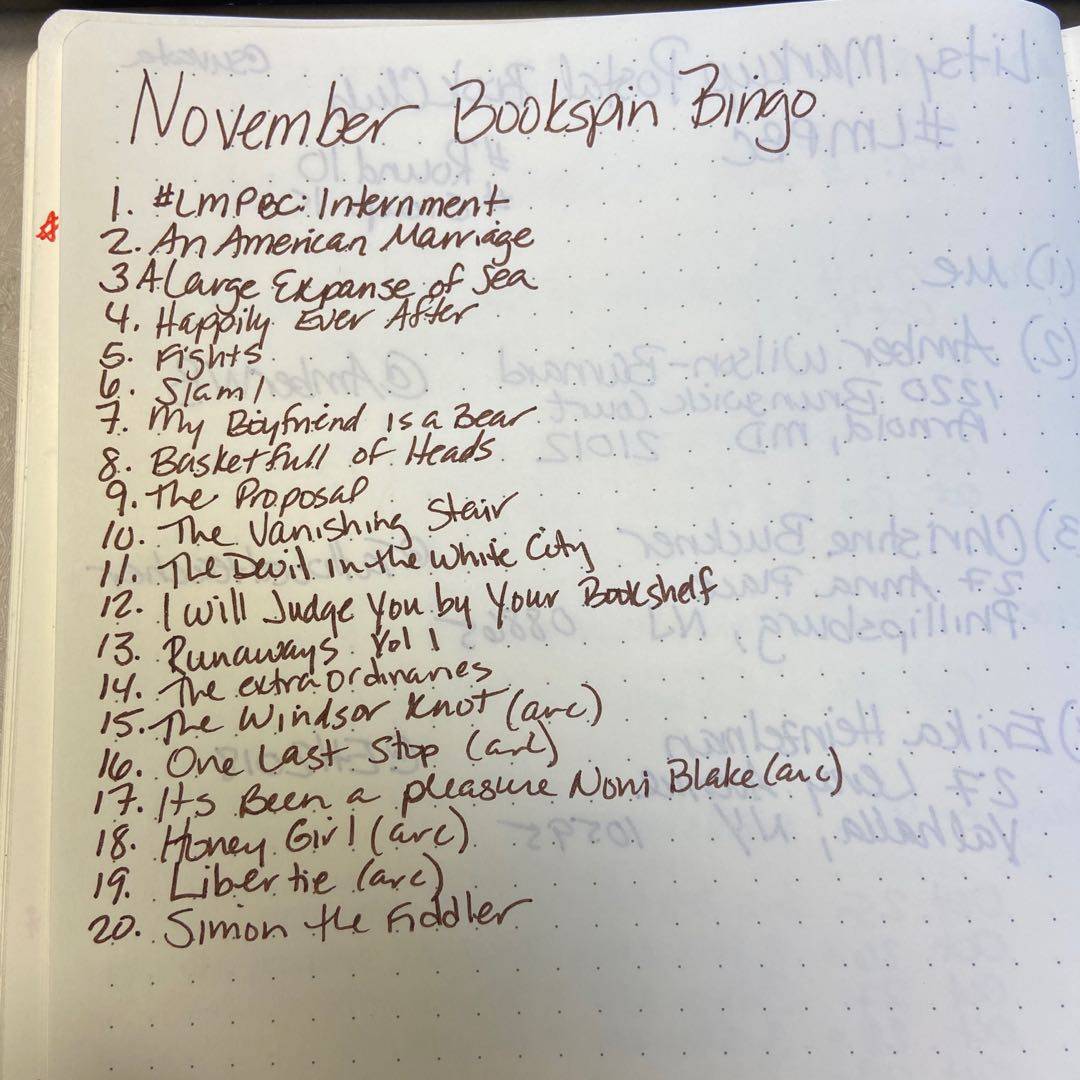 November Bookspin Bingo
1. #LMPBC: Internment
2. An American Marriage
3 A Large Expanse of Sea
4. Happily Ever After
5. Fights
6. Slam!
7. My Boyfriend is a Bear
8. Basketfull of Heads
9. The Proposal
10. The Vanishing Stair
11. The Devil in the White City
12. I will Judge You by Your Bookshelf
13. Runaways Vol 1
14. The extraordinaries
15. The Windsor Knot (arc)
16. One Last Stop (arc)
17. Its Been a pleasure Noni Blake (arc)
18. Honey Girl (arc)
19. Libertie (arc)
20. Simon the Fiddler